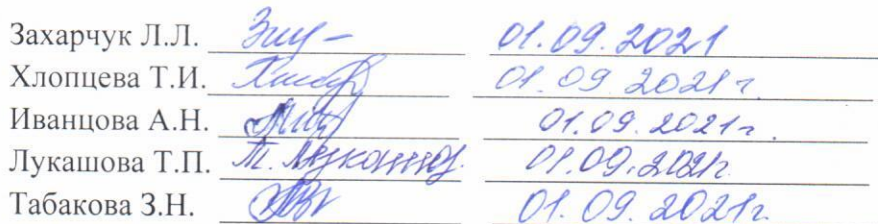 Захарчук Л.Л. 01.09.2021
Хлопцева Т.И. 01.09 2021 г.
Иванцова А.Н. 01.09.2021 г.
Лукашова Т.П. 01.09.2021г.
Табакова З.Н. 01.09.2021г.